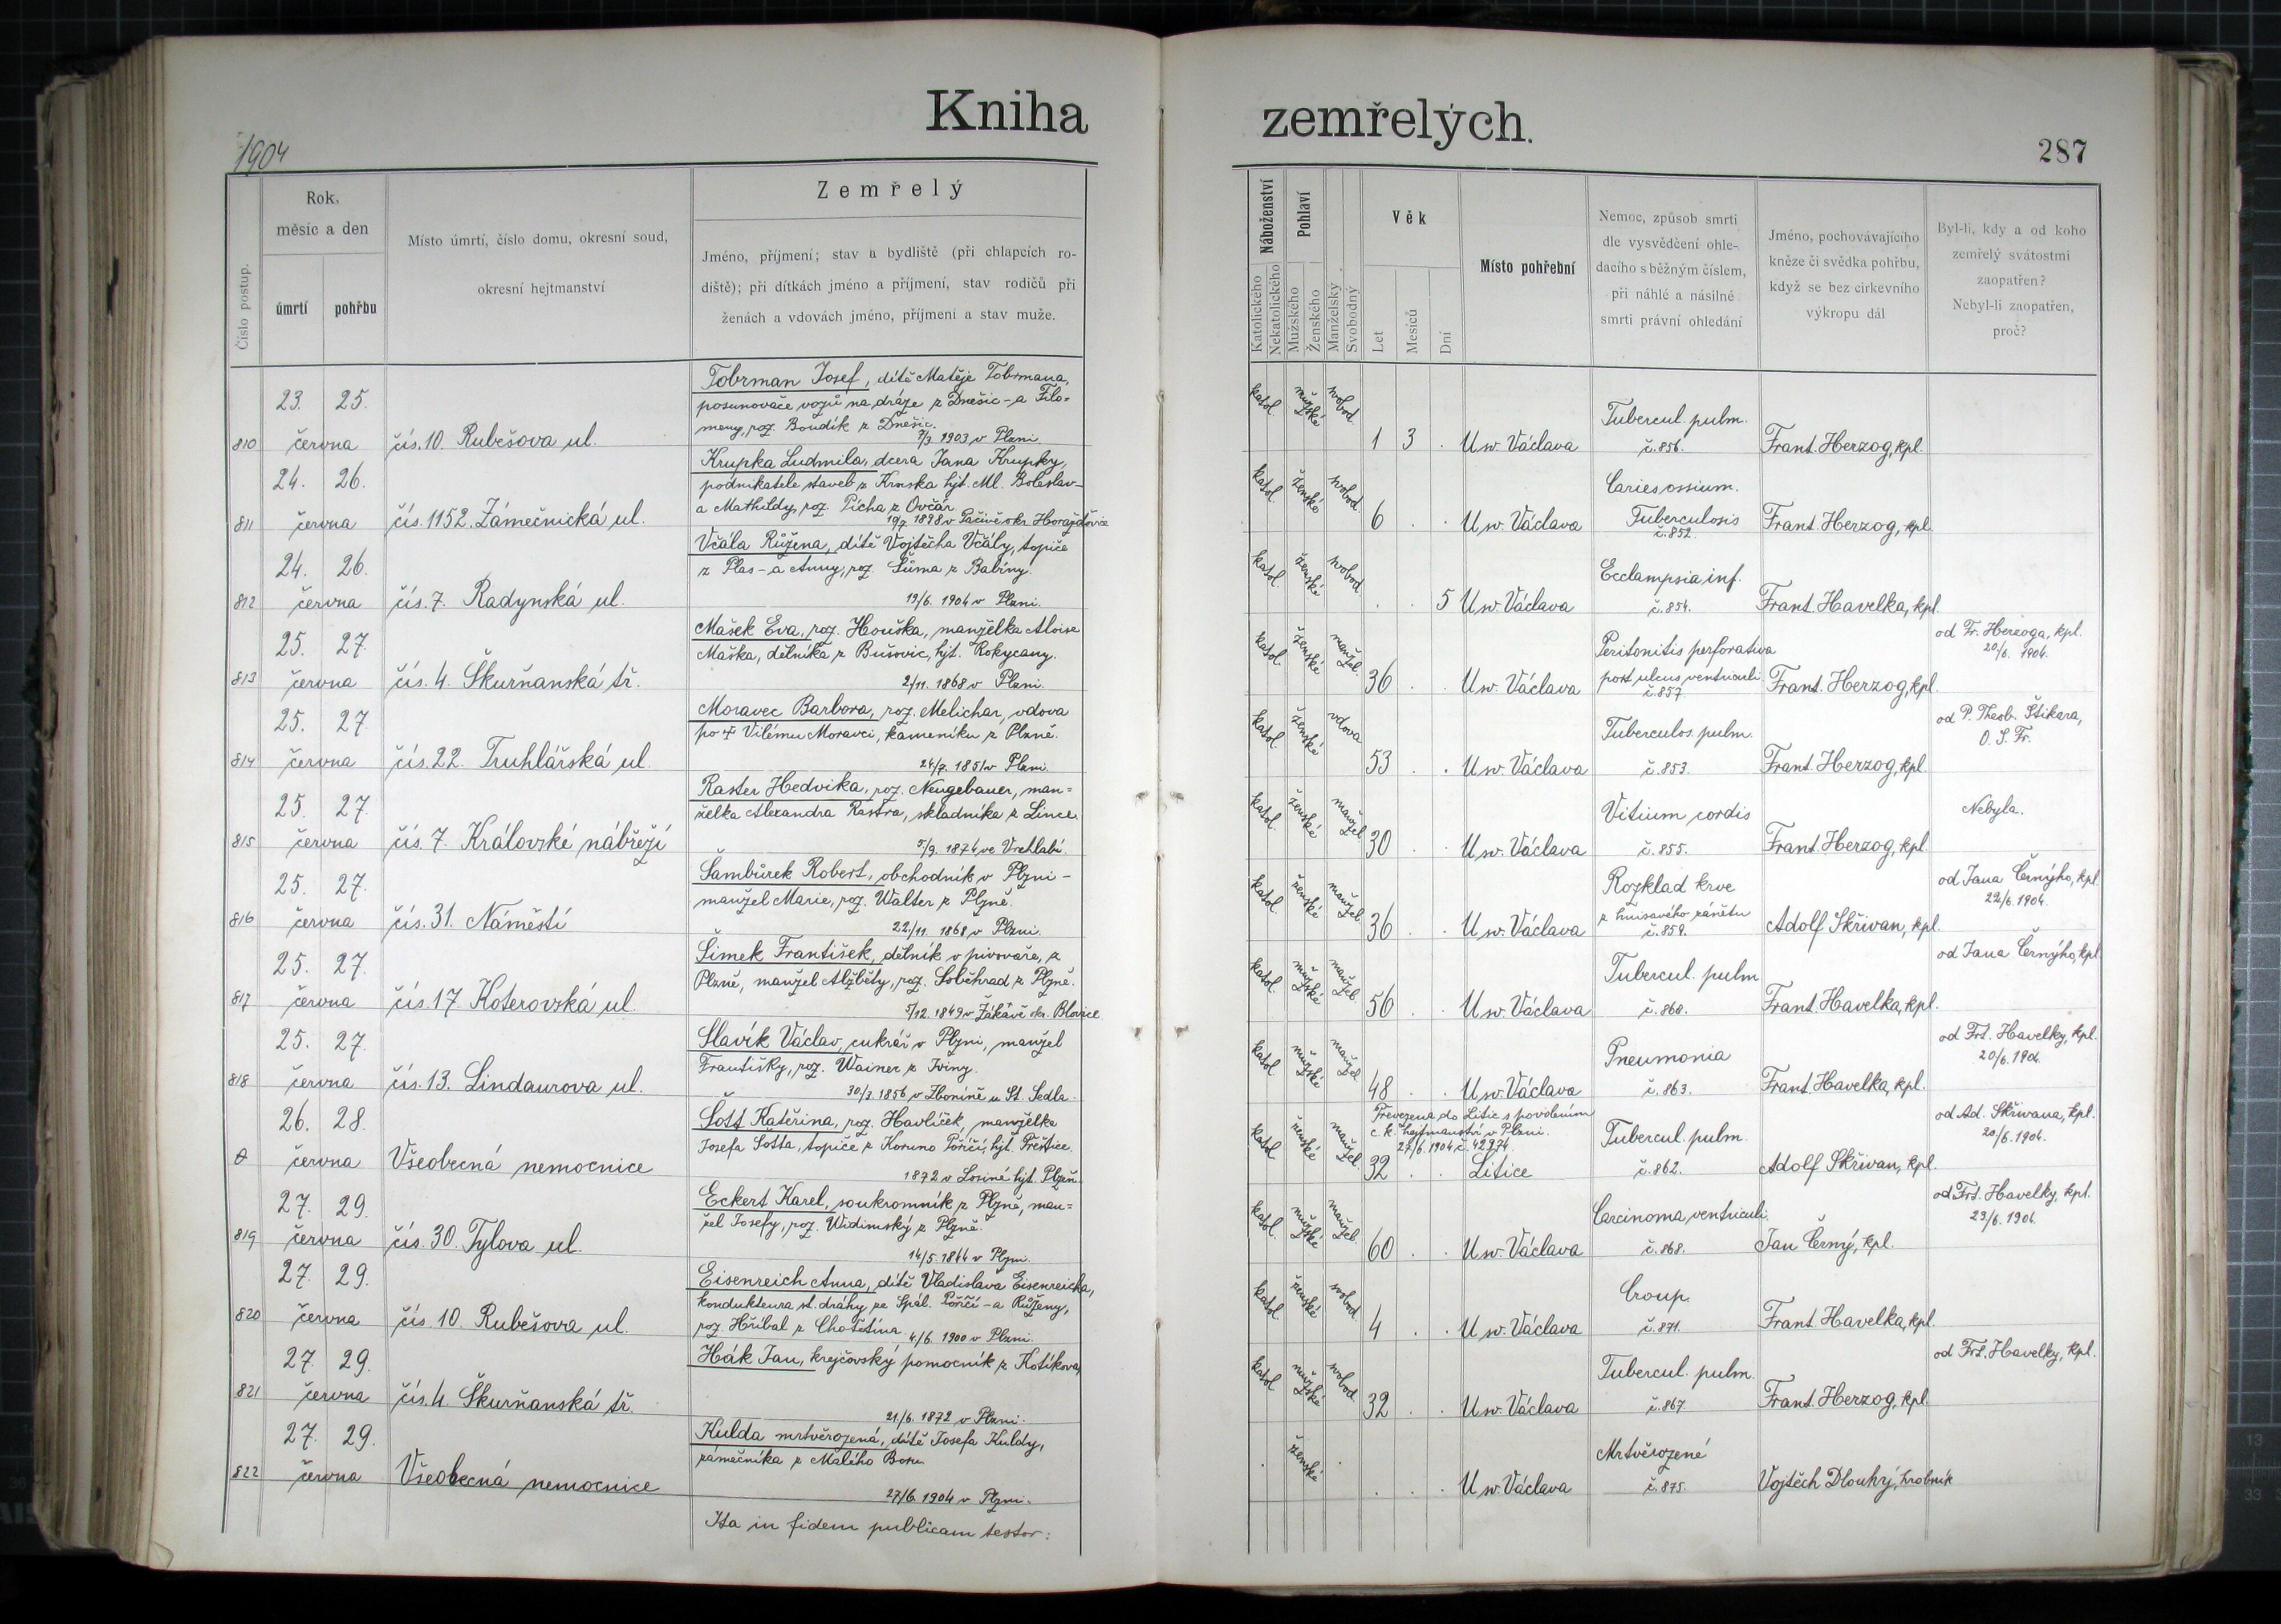 Kniha zemřelých.
1904
287
Číslo postup.
Rok, měsíc a den
úmrtí
pohřbu
Místo úmrtí, číslo domu, okresní soud,
okresní hejtmanství
Zemřelý
Jméno, příjmení; stav a bydliště (při chlapcích ro-
diště); při dítkách jméno a příjmení, stav rodičů při
ženách a vdovách jméno, příjmení a stav muže.
Náboženství
Katolického
Nekatolického
Pohlaví
Mužského
Ženského
Manželský
Svobodný
Věk
Let
Mesiců
Dní
Místo pohřební
Nemoc, způsob smrti
dle vysvědčení ohle-
dacího s běžným číslem,
při náhlé a násilné
smrti právní ohledání
Jméno, pochovávajícího
kněze či svědka pohřbu,
když se bez cirkevního
výkropu dál
Byl-li, kdy a od koho
zemřelý svátostmi
zaopatřen?
Nebyl-li zaopatřen,
proč?
810 23. 25. června čís. 10. Rubešova ul.
Tobrman Josef, dítě Matěje Tobrmana,
posunovače vozů na dráze z Dnešic - a Filo=
meny, roz. Boudík z Dnešic.
7/3 1903 v Plzni.
katol. mužské svobod. 1 3 . U sv. Václava
Tubercul. pulm.
č. 856.
Frant. Herzog, kpl.
811 24. 26. června čís. 1152. Zámečnická ul.
Krupka Ludmila, dcera Jana Krupky,
podnikatele staveb z Krnska hjt. Ml. Boleslav -
a Mathildy, roz. Pícha z Ovčár
19/7. 1898 v Pačivě okr. Horažďovice
katol. ženské svobod. 6 . . U sv. Václava
Caries ossium.
Tuberculosis
č. 852.
Frant. Herzog, kpl.
812 24. 26. června čís. 7. Radynská ul.
Včala Růžena, dítě Vojtěcha Včály, topiče
z Plas - a Anny, roz. Šůma z Babiny.
19/6. 1904 v Plzni.
katol. ženské svobod. . . 5 U sv. Václava
Ecclampsia inf.
č. 854.
Frant. Havelka, kpl.
813 25. 27. června čís. 4. Škurňanská tř.
Mašek Eva, roz. Houška, manželka Aloise
Maška, dělníka z Bušovic, hjt. Rokycany.
2/11. 1868 v Plzni.
katol. ženské manžel. 36 . . U sv. Václava
Peritonitis perforativa
post ulcus ventriculi
č. 857
Frant. Herzog, kpl.
od Fr. Herzoga, kpl.
20/6. 1904.
814 25. 27. června čís. 22. Truhlářská ul.
Moravec Barbora, roz. Melichar, vdova
po † Vilému Moravci, kameníku z Plzně.
24/7. 1851 v Plzni.
katol. ženské vdova 53 . . U sv. Václava
Tuberculos. pulm.
č. 853.
Frant. Herzog, kpl.
od P. Theob. Štikara,
O. S. Fr.
815 25. 27. června čís. 7. Královské nábřeží
Raster Hedvika, roz. Neugebauer, man=
želka Alexandra Rastra, skladníka z Lince.
5/9. 1874 ve Vrchlabí.
katol. ženské manžel. 30 . . U sv. Václava
Vitium cordis
č. 855.
Frant. Herzog, kpl.
Nebyla.
816 25. 27. června čís. 31. Náměstí
Šambůrek Robert, obchodník v Plzni -
manžel Marie, roz. Walter z Plzně.
22./11. 1868 v Plzni.
katol. ženské manžel. 36 . . U sv. Václava
Rozklad krve
z hnisavého zánětu
č. 859.
Adolf Skřivan, kpl.
od Jana Černýho, kpl.
22/6. 1904.
817 25. 27. června čís. 17. Koterovská ul.
Šimek František, dělník v pivováře, z
Plzně, manžel Alžběty, roz. Soběhrad z Plzně.
5/12. 1849 v Žákavě okr. Blovice
katol. mužské manžel. 56 . . U sv. Václava
Tubercul. pulm
č. 860.
Frant. Havelka, kpl.
od Jana Černýho, kpl.
818 25. 27. června čís. 13. Lindaurova ul.
Slavík Václav, cukrář v Plzni, manžel
Františky, roz. Wainer z Iviny.
30/3. 1856 v Zboníně u St. Sedla.
katol. mužské manžel. 48 . . U sv. Václava
Pneumonia
č. 863.
Frant. Havelka, kpl.
od Frt. Havelky, kpl.
20/6. 1904.
θ 26. 28. června Všeobecná nemocnice
Šott Kateřina, roz. Havlíček, manželka
Josefa Šotta, topiče z Koruno Poříčí, hjt. Přeštice.
1872 v Losiné hjt. Plzeň.
katol. ženské manžel. 32 . .
Převezena do Litic s povolením
c. k. hejtmanství v Plzni.
27/6. 1904 č. 42974.
Litice
Tubercul. pulm.
č. 862.
Adolf Skřivan, kpl.
od Ad. Skřivana, kpl.
20/6. 1904.
819 27. 29. června čís. 30. Tylova ul.
Eckert Karel, soukromník z Plzně, man=
žel Josefy, roz. Widimský z Plzně.
14/5. 1844 v Plzni.
katol. mužské manžel. 60 . . U sv. Václava
Carcinoma ventriculi.
č. 868.
Jan Černý, kpl.
od Frt. Havelky, kpl.
23/6. 1904.
820 27. 29. června čís. 10. Rubešova ul.
Eisenreich Anna, dítě Vladislava Eisenreicha,
kondukteura st. dráhy ze Spál. Poříčí - a Růženy,
roz. Hříbal z Chotětína 4/6. 1900 v Plzni.
katol. ženské svobod. 4 . . U sv. Václava
Croup.
č. 871.
Frant. Havelka, kpl.
821 27. 29. června čís. 4. Škurňanská tř.
Hák Jan, krejčovský pomocník z Kotíkova,
21/6. 1872 v Plzni.
katol. mužské svobod. 32 . . U sv. Václava
Tubercul. pulm.
č. 867.
Frant. Herzog, kpl.
od Frt. Havelky, kpl.
822 27. 29. června Všeobecná nemocnice
Kulda mrtvěrozená, dítě Josefa Kuldy,
zámečníka z Malého Boru
27/6. 1904 v Plzni.
. ženské . . . . U sv. Václava
Mrtvěrozené
č. 875.
Vojtěch Dlouhý, hrobník
Ita in fidem publicam testor: